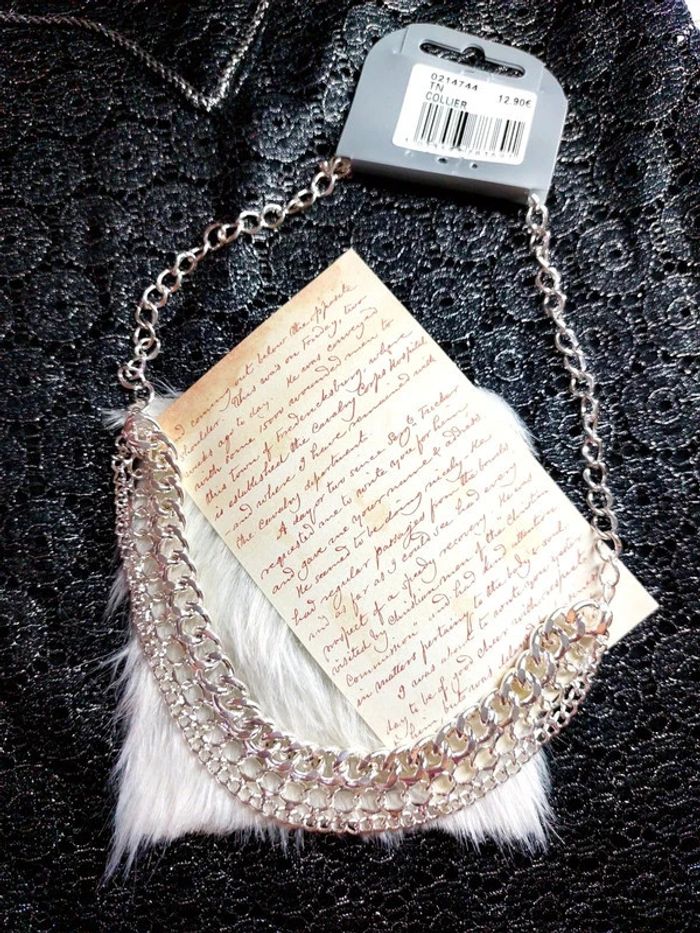 0214744
TN 12.90€
COLLIER
coming out below the opposite
shoulder. This was on Friday, two
weeks ago to day. He was conveyed
with some 1500 wounded men to
this town of Fredericksburg, where
is established the Cavalry Corps Hospital
and where I have remained with
the Cavalry department.
A day or two since Sergt Tracker
requested me to write you for him
and gave me your name & address
He seemed to be doing nicely. He
had regular passages from the bowels
and as far as I could see had every
prospect of a speedy recovery. He was
visited by Christian men of the Christian
Commission and had kind attention
in matters pertaining to the body & soul.
I was about to write you yesterday
day to be of good cheer with respect to